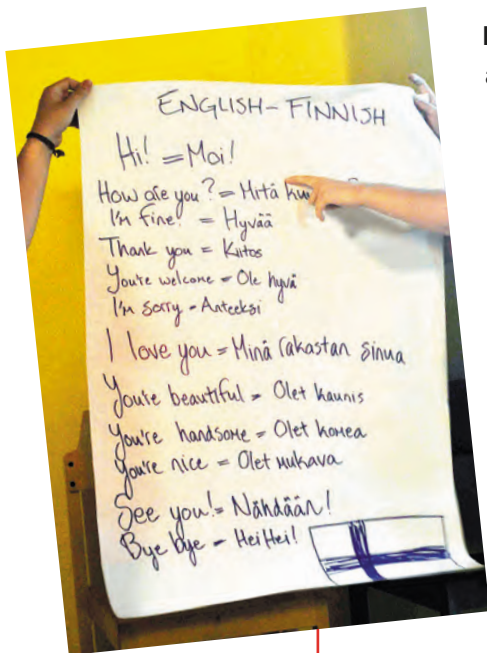 ENGLISH-FINNISH
Hi! = Moi!
How are you? = Mitä
I'm fine! = Hyvää
Thank you = Kiitos
You're welcome = Ole hyvä
I'm sorry - Anteeksi
I love you = Minä rakastan sinua
You're beautiful = Olet kaunis
You're handsome = Olet komea
You're nice = Olet mukava
See you! = Nähdään!
Bye bye - Hei Hei!